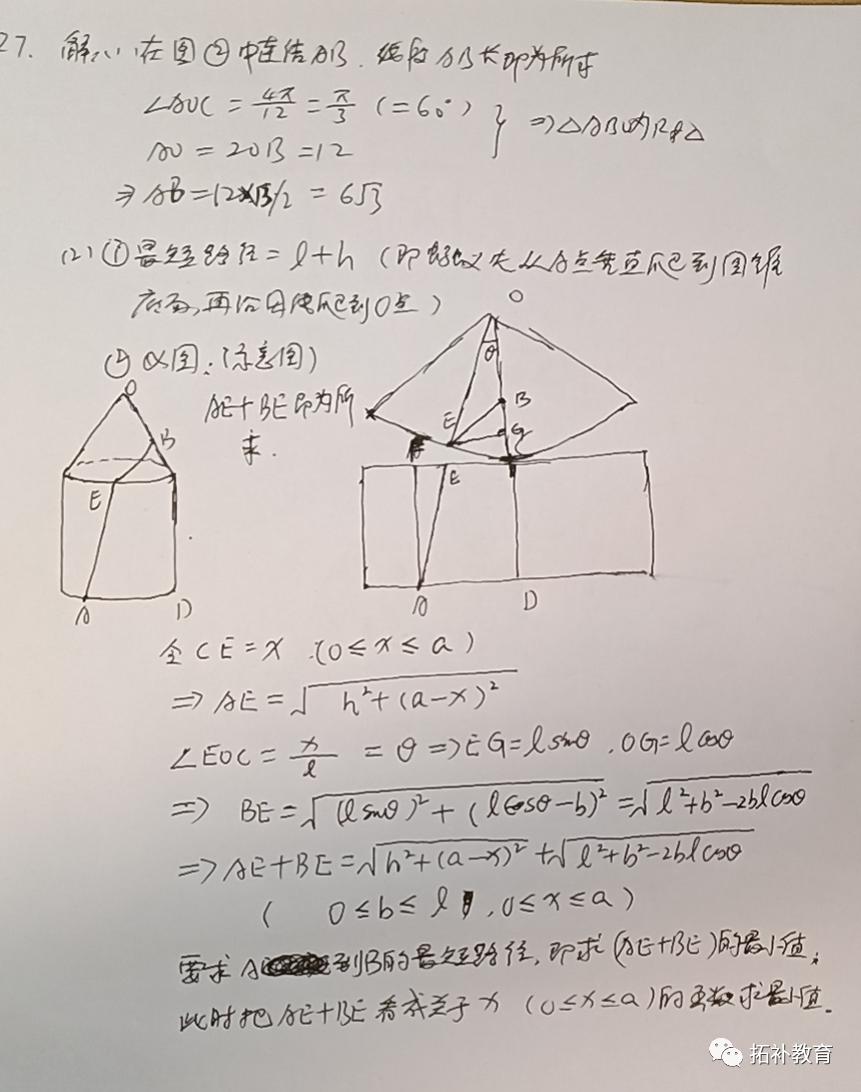 27. 解:(1) 在图②中连结AB. 线段AB长即为所求
∠AOC = 4π/12 = π/3 (=60°)
AO = 2OB = 12
} ⇒ △ABO为Rt△
⇒ AB = 12×√3/2 = 6√3
(2) ①最短路径 = l+h (即蚂蚁先从A点竖直爬到圆锥
底面,再沿母线爬到O点)
② 如图:(示意图)
AE+BE即为所
求.
O
θ
B
E
G
C
E
A
D
O
B
E
A
D
令 CE = x (0≤x≤a)
⇒ AE = √(h²+(a-x)²)
∠EOC = x/l = θ ⇒ EG = l sinθ , OG = l cosθ
⇒ BE = √((l sinθ)²+(l cosθ-b)²) = √(l²+b²-2bl cosθ)
⇒ AE+BE = √(h²+(a-x)²) + √(l²+b²-2bl cosθ)
( 0≤b≤l , 0≤x≤a )
要求A到B的最短路径, 即求(AE+BE)的最小值;
此时把AE+BE看成关于x (0≤x≤a)的函数求最小值.
拓补教育